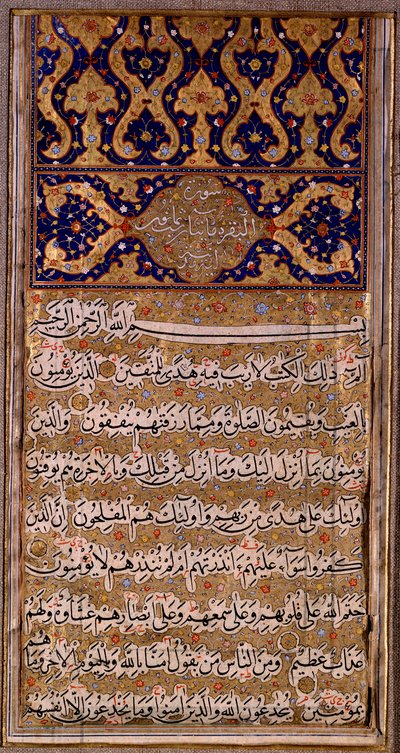 سورة
البقرة مائتان
بِسْمِ اللَّهِ الرَّحْمَنِ الرَّحِيمِ
الم ذَلِكَ الْكِتَبُ لَا رَيْبَ فِيهِ هُدًى لِلْمُتَّقِينَ الَّذِينَ يُؤْمِنُونَ
بِالْغَيْبِ وَيُقِيمُونَ الصَّلَوةَ وَمِمَّا رَزَقْنَهُمْ يُنْفِقُونَ وَالَّذِينَ
يُؤْمِنُونَ بِمَا أُنْزِلَ إِلَيْكَ وَمَا أُنْزِلَ مِنْ قَبْلِكَ وَبِالْآخِرَةِ هُمْ يُوقِنُونَ
أُولَئِكَ عَلَى هُدًى مِنْ رَبِّهِمْ وَأُولَئِكَ هُمُ الْمُفْلِحُونَ إِنَّ الَّذِينَ
كَفَرُوا سَوَاءٌ عَلَيْهِمْ ءَأَنْذَرْتَهُمْ أَمْ لَمْ تُنْذِرْهُمْ لَا يُؤْمِنُونَ
خَتَمَ اللَّهُ عَلَى قُلُوبِهِمْ وَعَلَى سَمْعِهِمْ وَعَلَى أَبْصَارِهِمْ غِشَاوَةٌ وَلَهُمْ
عَذَابٌ عَظِيمٌ وَمِنَ النَّاسِ مَنْ يَقُولُ آمَنَّا بِاللَّهِ وَبِالْيَوْمِ الْآخِرِ وَمَا هُمْ
بِمُؤْمِنِينَ يُخَدِعُونَ اللَّهَ وَالَّذِينَ آمَنُوا وَمَا يَخْدَعُونَ إِلَّا أَنْفُسَهُمْ